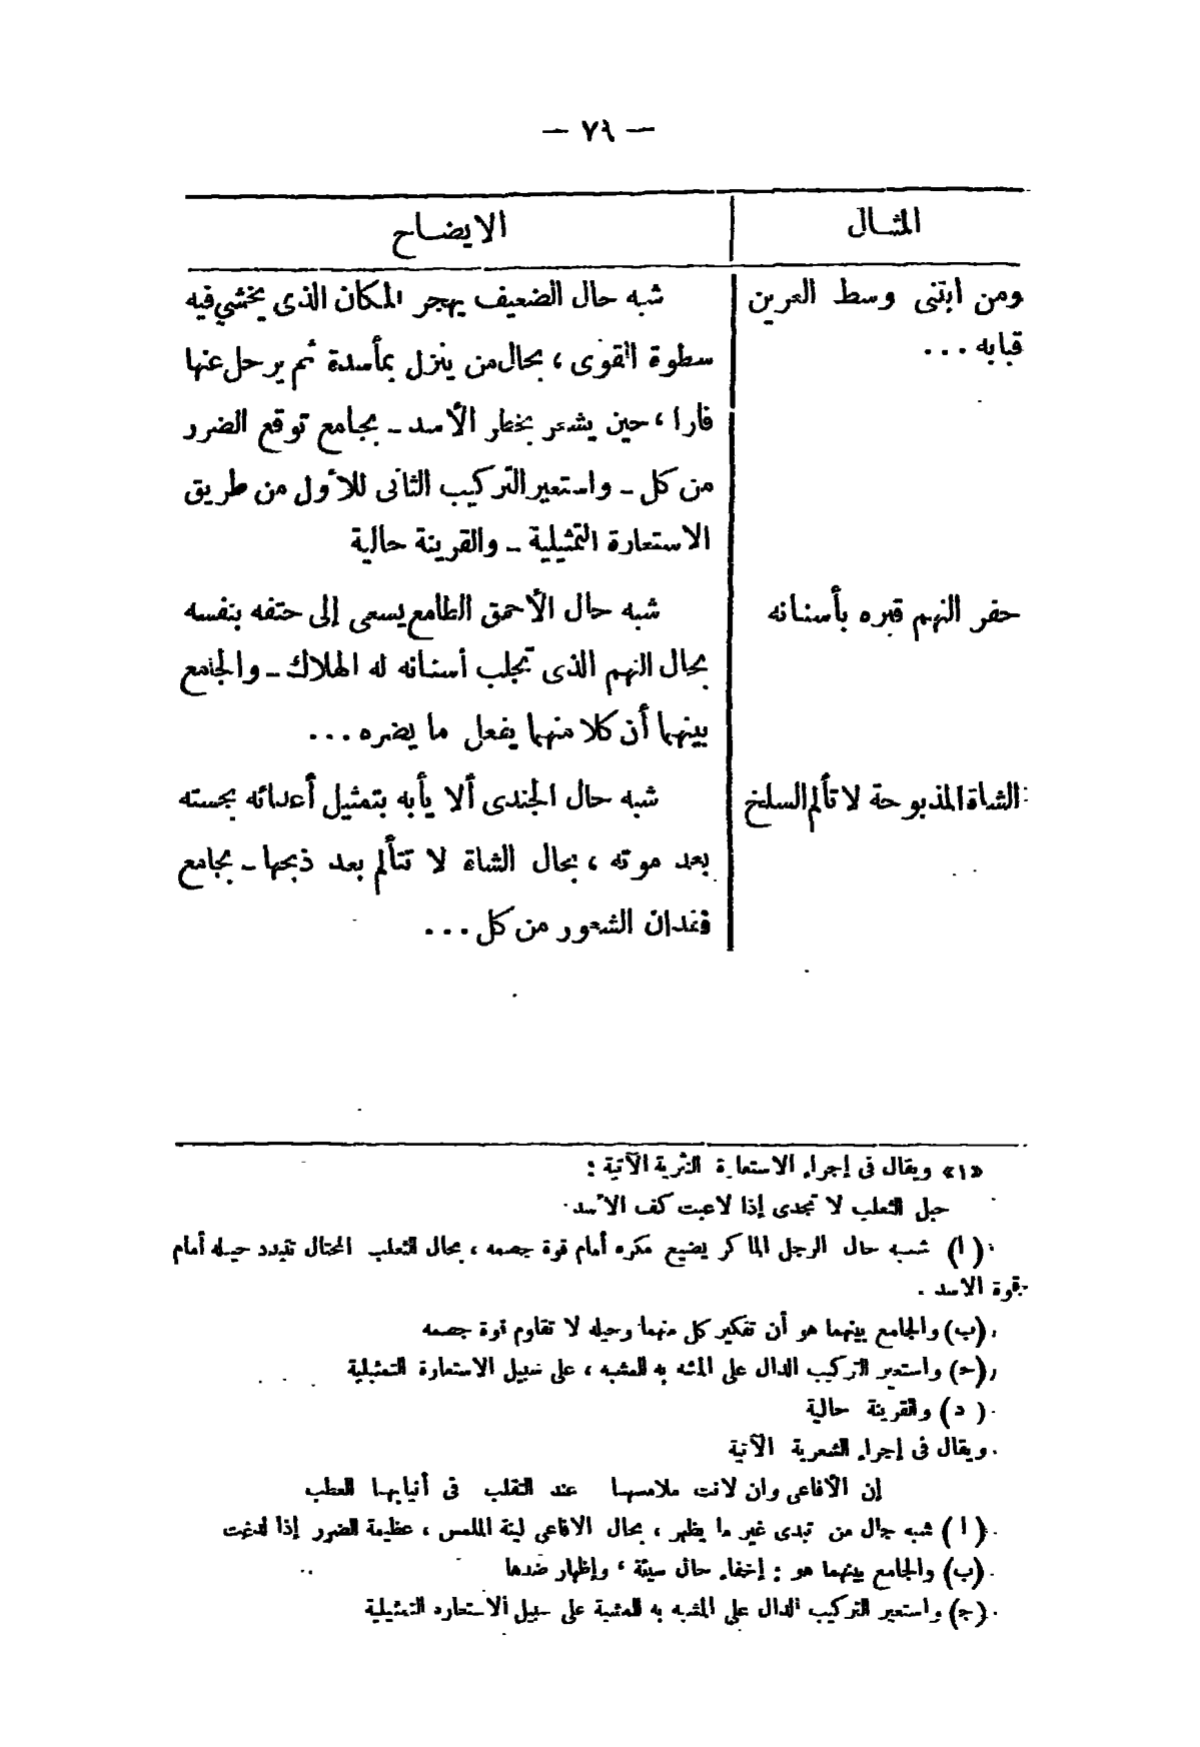 — ٧٩ —
المثـال
الايضـاح
ومن ابتنى وسط العرين
قبابه ...
شبه حال الضعيف يهجر المكان الذى يخشي فيه
سطوة القوى ، بحال من ينزل بمأسدة ثم يرحل عنها
فارا ، حين يشعر بخطر الأسد – بجامع توقع الضرر
من كل – واستعير التركيب الثانى للأول من طريق
الاستعارة التمثيلية – والقرينة حالية
حفر النهم قبره بأسنانه
شبه حال الأحمق الطامع يسعى إلى حتفه بنفسه
بحال النهم الذى تجلب أسنانه له الهلاك – والجامع
بينهما أن كلا منهما يفعل ما يضره ...
الشاة المذبوحة لا تألم السلخ
شبه حال الجندى ألا يأبه بتمثيل أعدائه بجسته
بعد موته ، بحال الشاة لا تتألم بعد ذبحها – بجامع
فقدان الشعور من كل ...
«١» ويقال فى إجراء الاستعارة النثرية الآتية :
حيل الثعلب لا تجدى إذا لاعبت كف الأسد
( ا ) شبه حال الرجل الماكر يضيع مكره أمام قوة جصمه ، بحال الثعلب المحتال تتبدد حيله أمام
قوة الاسد .
(ب) والجامع بينهما هو أن تفكير كل منهما وحيله لا تقاوم قوة جصمه
(ح) واستعير التركيب الدال على المشه به للمشبه ، على سبيل الاستعارة التمثيلية
( د ) والقرينة حالية
ويقال فى إجراء الشعرية الآتية
إن الأفاعى وان لانت ملامسها عند التقلب فى أنيابها العطب
( ا ) شبه حال من تبدى غير ما يظهر ، بحال الافاعى لينة الملمس ، عظيمة الضرر إذا لدغت
(ب) والجامع بينهما هو : إخفاء حال سيئة ، وإظهار ضدها
(ج) واستعير التركيب الدال على المشبه به للمشبة على سبيل الاستعارد التمثيلية